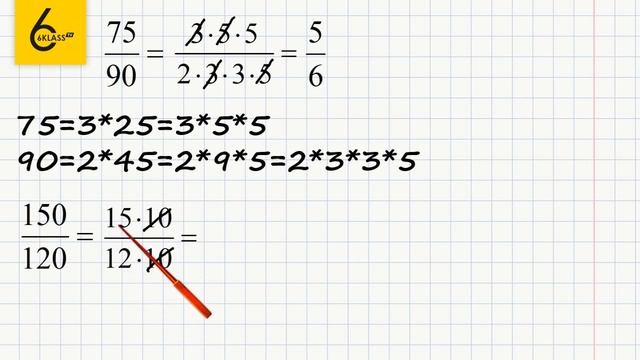 6KLASS TV
75/90 = 3·5·5/2·3·3·5 = 5/6
75=3*25=3*5*5
90=2*45=2*9*5=2*3*3*5
150/120 = 15·10/12·10 =